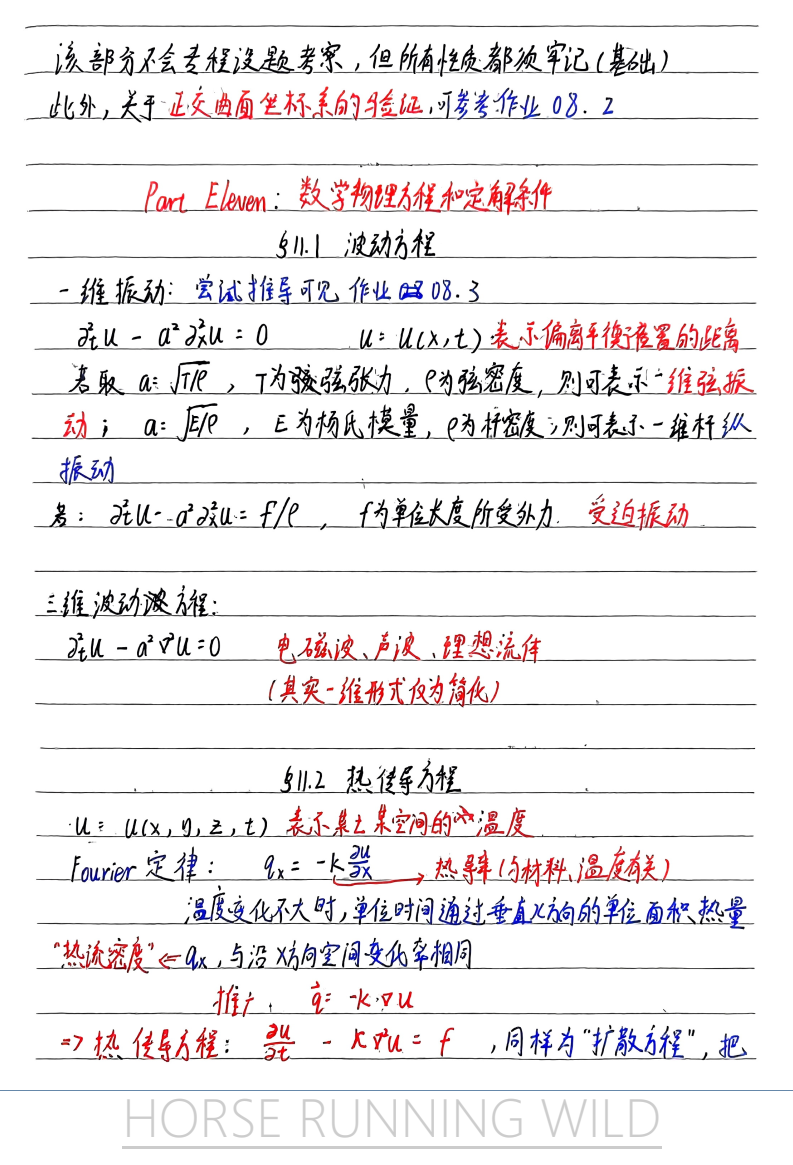 该部分不会专程设题考察,但所有性质都须牢记(基础)
此外,关于正交曲面坐标系的验证,可参考作业 08. 2
Part Eleven: 数学物理方程和定解条件
§11.1 波动方程
一维振动: 尝试推导可见 作业 08.3
∂²ₜu - a²∂²ₓu = 0 u = u(x,t) 表示偏离平衡位置的距离
若取 a=√T/ρ , T为弦张力, ρ为弦密度, 则可表示一维弦振
动; a=√E/ρ , E为杨氏模量, ρ为杆密度;则可表示一维杆纵
振动
若: ∂²ₜu - a²∂²ₓu = f/ρ , f为单位长度所受外力. 受迫振动
三维波动方程:
∂²ₜu - a²∇²u = 0 电磁波、声波、理想流体
(其实一维形式仅为简化)
§11.2 热传导方程
u = u(x, y, z, t) 表示某土某空间的温度
Fourier 定律: qₓ = -k ∂u/∂x → 热导率(与材料、温度有关)
温度变化不大时,单位时间通过垂直x方向的单位面积热量
“热流密度”⇐ qₓ, 与沿x方向空间变化率相同
推广, q⃗ = -k·∇u
=> 热传导方程: ∂u/∂t - κ∇²u = f , 同样为“扩散方程”, 把
HORSE RUNNING WILD